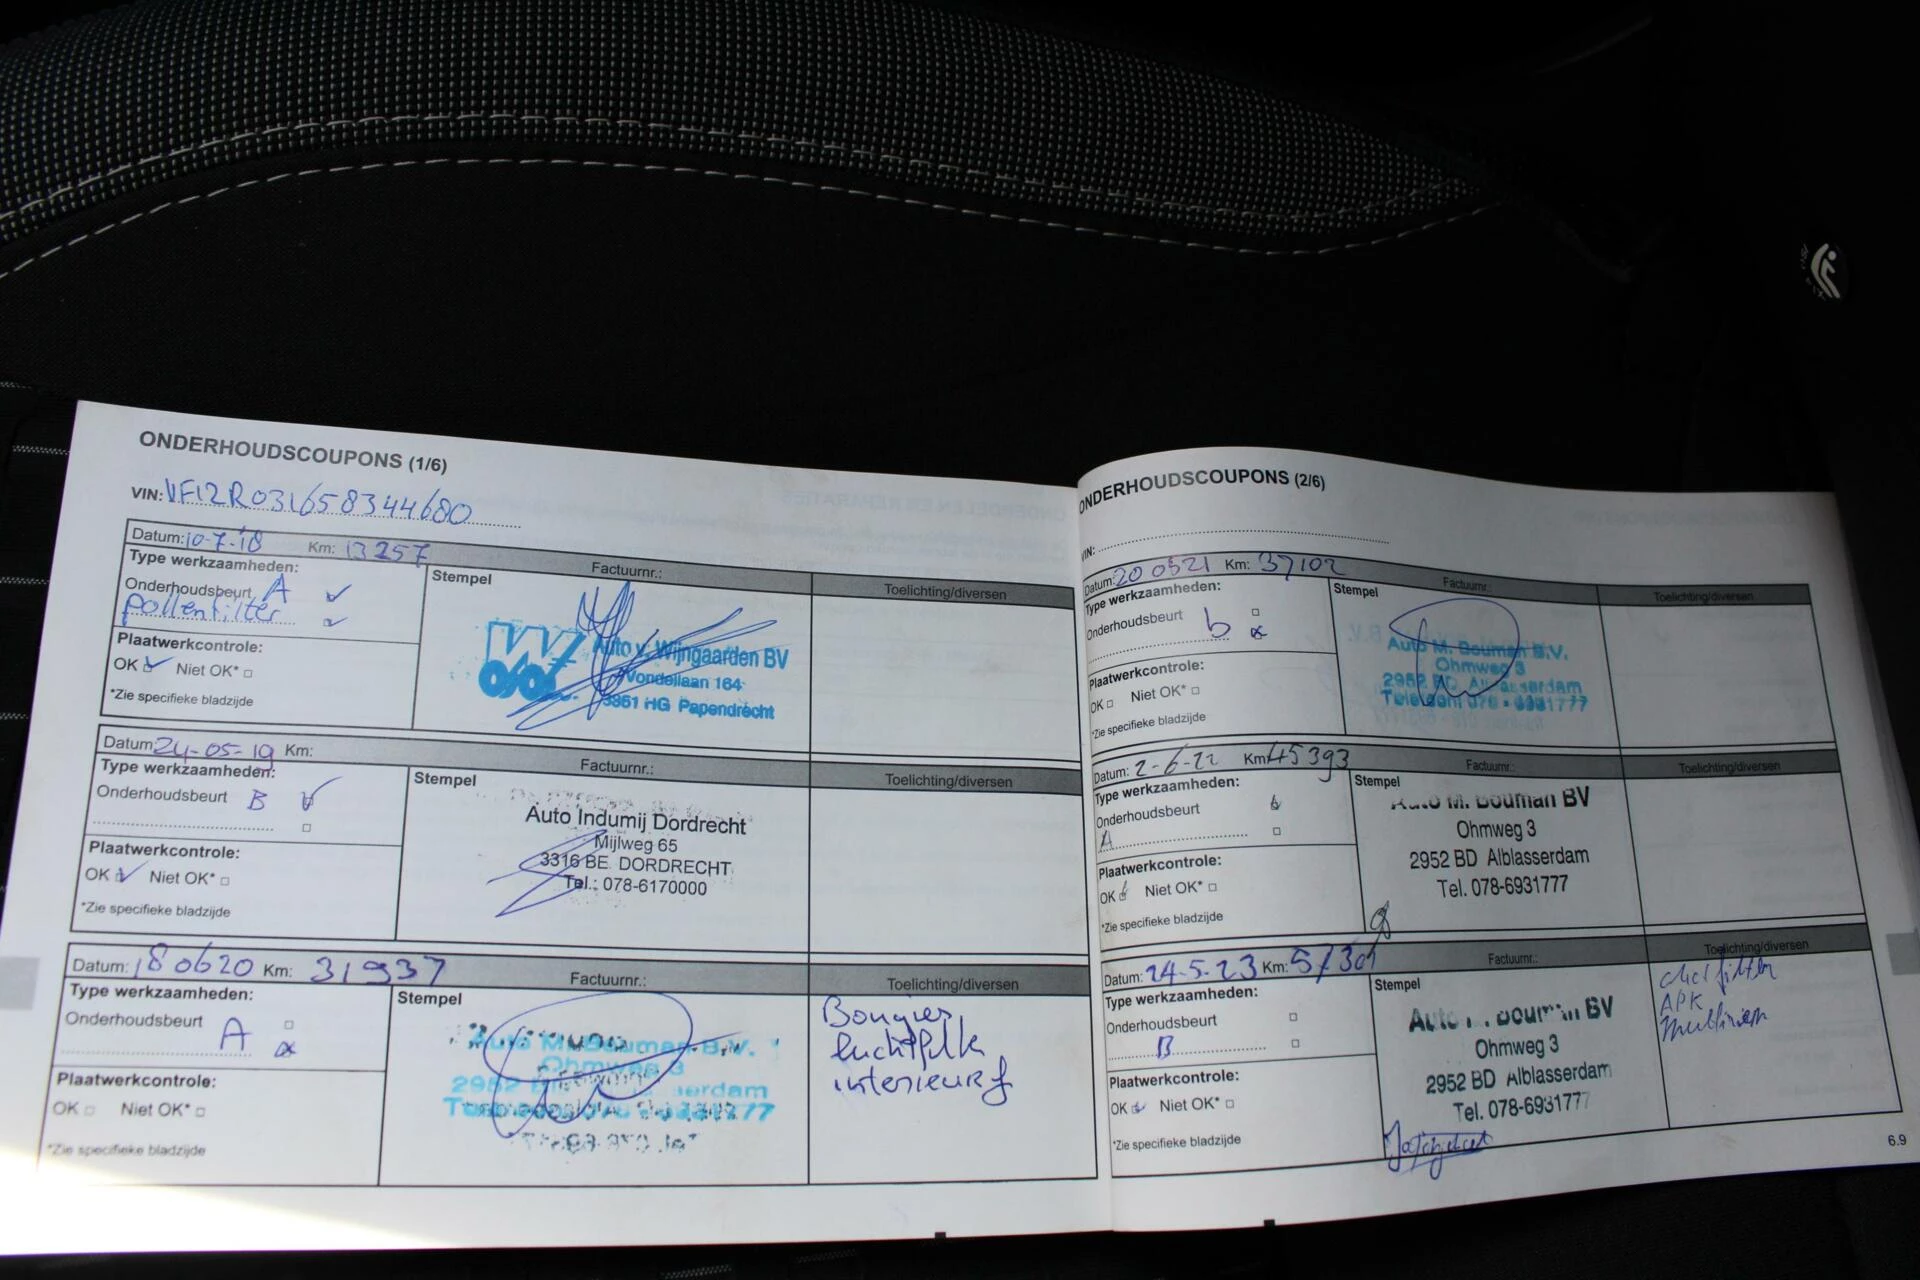 ONDERHOUDSCOUPONS (1/6)
VIN: VF12R031658344680
Datum: 10-7-'18 Km: 13257
Factuurnr.:
Type werkzaamheden:
Stempel
Toelichting/diversen
Onderhoudsbeurt A
pollenfilter
Plaatwerkcontrole:
OK Niet OK*
*Zie specifieke bladzijde
Auto v. Wijngaarden BV
Vondellaan 164
3351 HG Papendrecht
Datum: 24-05-19 Km:
Factuurnr.:
Type werkzaamheden:
Stempel
Toelichting/diversen
Onderhoudsbeurt B
Plaatwerkcontrole:
OK Niet OK*
*Zie specifieke bladzijde
Auto Indumij Dordrecht
Mijlweg 65
3316 BE DORDRECHT
Tel.: 078-6170000
Datum: 180620 Km: 31937
Factuurnr.:
Type werkzaamheden:
Stempel
Toelichting/diversen
Onderhoudsbeurt
A
Plaatwerkcontrole:
OK Niet OK*
*Zie specifieke bladzijde
Auto M. Bouman B.V.
Ohmweg 3
Bougies
interieur f
ONDERHOUDSCOUPONS (2/6)
VIN:
Datum: 200521 Km: 37102
Factuurnr.:
Type werkzaamheden:
Stempel
Toelichting/diversen
Onderhoudsbeurt
b
Plaatwerkcontrole:
OK Niet OK*
*Zie specifieke bladzijde
Auto M. Bouman B.V.
Ohmweg 3
2952 BD Alblasserdam
Telefoon 078 - 6931777
Datum: 2-6-22 Km: 45393
Factuurnr.:
Type werkzaamheden:
Stempel
Toelichting/diversen
Onderhoudsbeurt
A
Plaatwerkcontrole:
OK Niet OK*
*Zie specifieke bladzijde
Auto M. Bouman BV
Ohmweg 3
2952 BD Alblasserdam
Tel. 078-6931777
Datum: 24-5-23 Km:
Factuurnr.:
Type werkzaamheden:
Stempel
Toelichting/diversen
Onderhoudsbeurt
B
Plaatwerkcontrole:
OK Niet OK*
*Zie specifieke bladzijde
Auto M. Bouman BV
Ohmweg 3
2952 BD Alblasserdam
Tel. 078-6931777
APK
multiriem
6.9